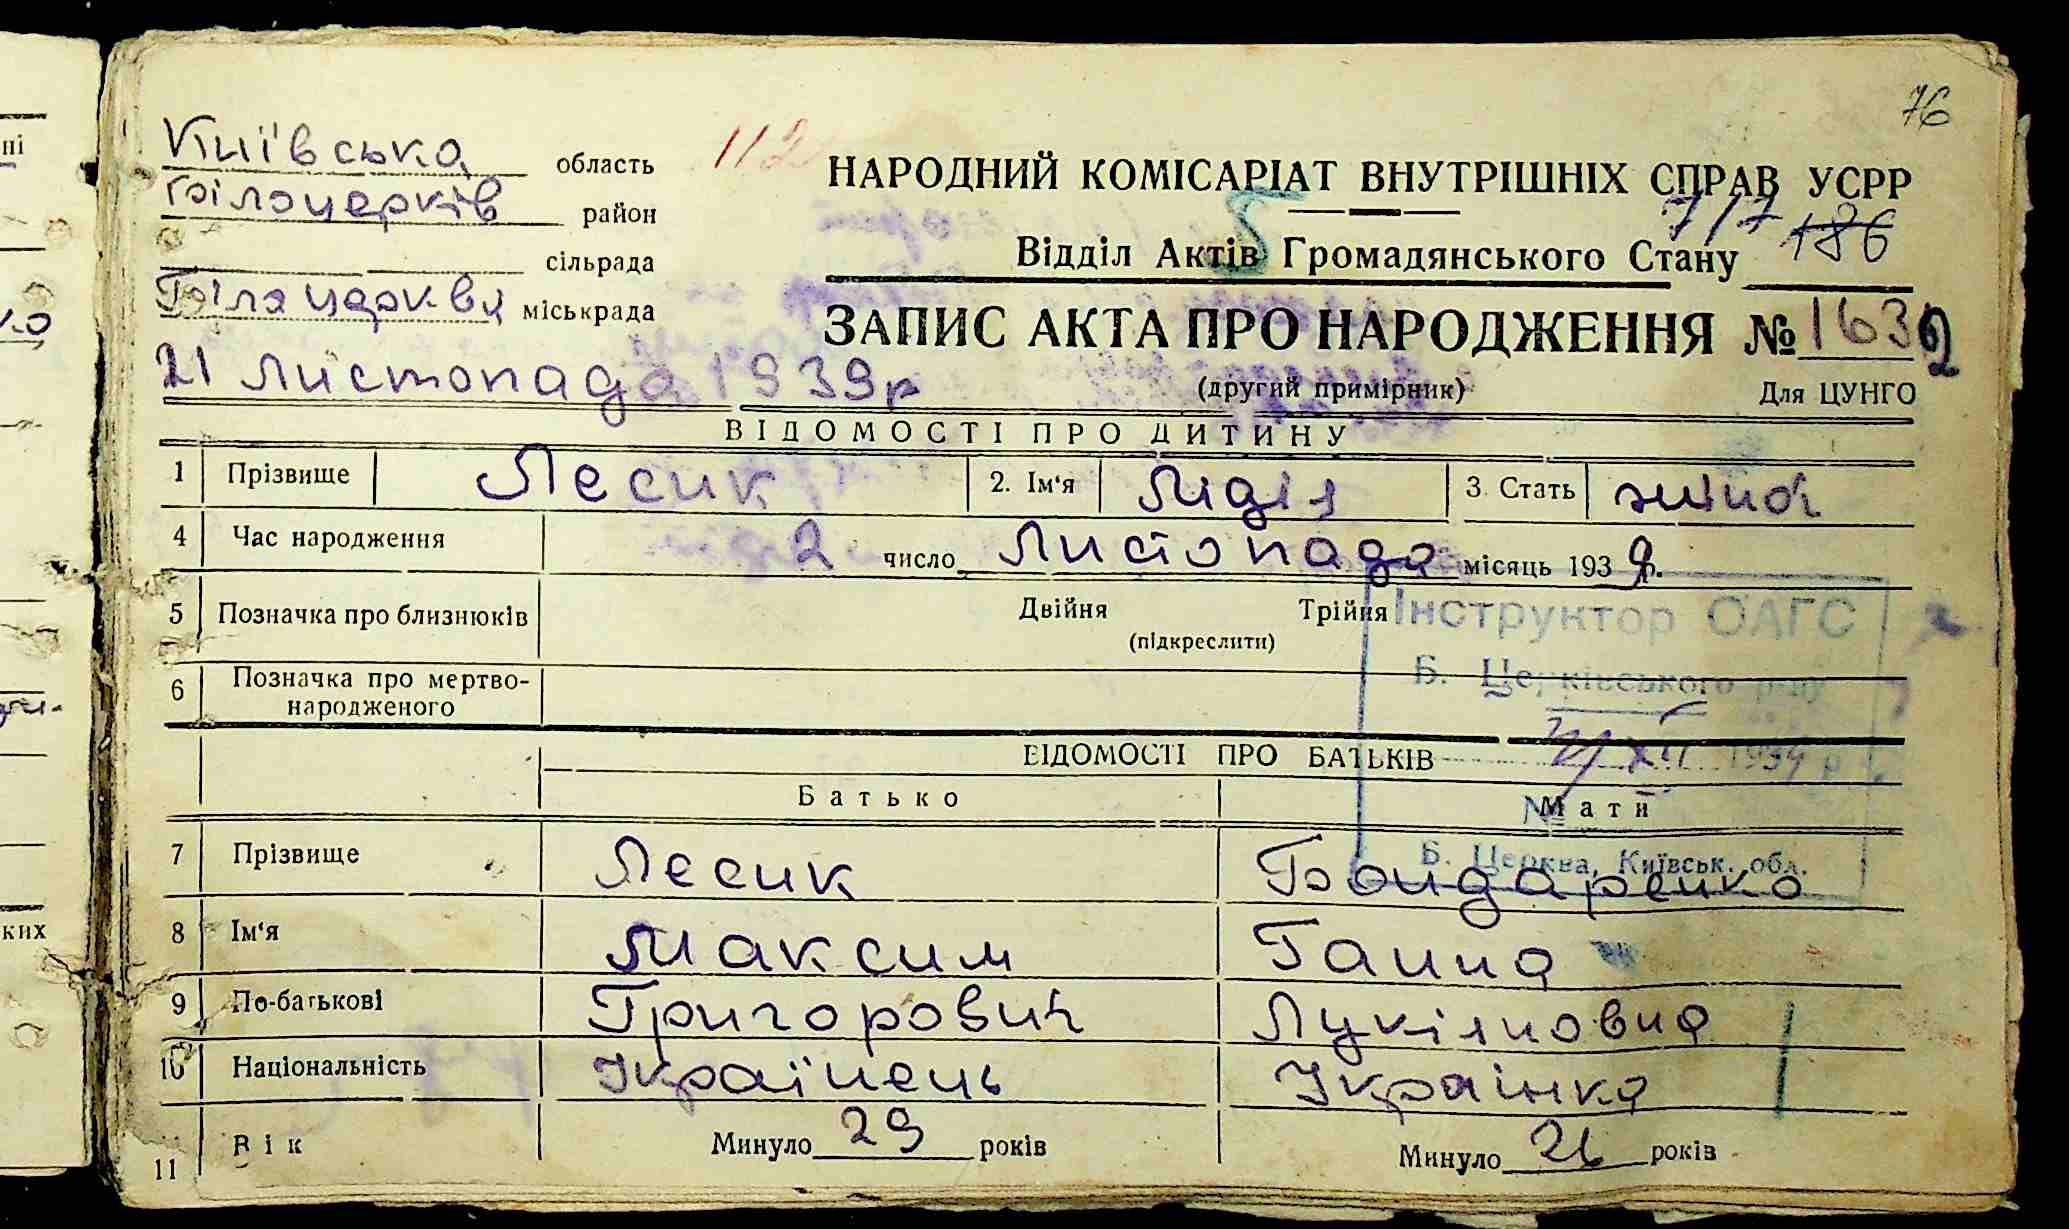 76
112
Київська область
Білоцерків район
сільрада
Біла церква міськрада
НАРОДНИЙ КОМІСАРІАТ ВНУТРІШНІХ СПРАВ УСРР
717 186
Відділ Актів Громадянського Стану
5
ЗАПИС АКТА ПРО НАРОДЖЕННЯ № 1632
21 листопада 1939 р
(другий примірник) Для ЦУНГО
ВІДОМОСТІ ПРО ДИТИНУ
1 Прізвище Лесик 2. Ім'я Лідія 3. Стать жіноч
4 Час народження 2 число Листопада місяць 1939 р.
5 Позначка про близнюків Двійня Трійня
(підкреслити)
6 Позначка про мертво-
народженого
Інструктор ОАГС
Б. Церківського р-ну
Б. Церква, Київськ. обл.
ВІДОМОСТІ ПРО БАТЬКІВ
Батько Мати
7 Прізвище Лесик Бондаренко
8 Ім'я Максим Ганна
9 По-батькові Григорович Лукіяновна
10 Національність Українець Українка
11 Вік Минуло 29 років Минуло 26 років
ні
ко
ких